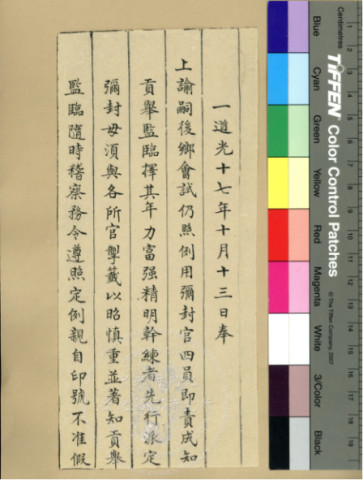 一道光十七年十月十三日奉
上諭嗣後鄉會試仍照例用彌封官四員即責成知
貢舉監臨擇其年力富强精明幹練者先行派定
彌封毋須與各所官掣籤以昭慎重並著知貢舉
監臨隨時稽察務令遵照定例親自印號不准假
Centimetres
TIFFEN Color Control Patches
© The Tiffen Company, 2007
Blue
Cyan
Green
Yellow
Red
Magenta
White
3/Color
Black
1
2
3
4
5
6
7
8
9
10
11
12
13
14
15
16
17
18
19